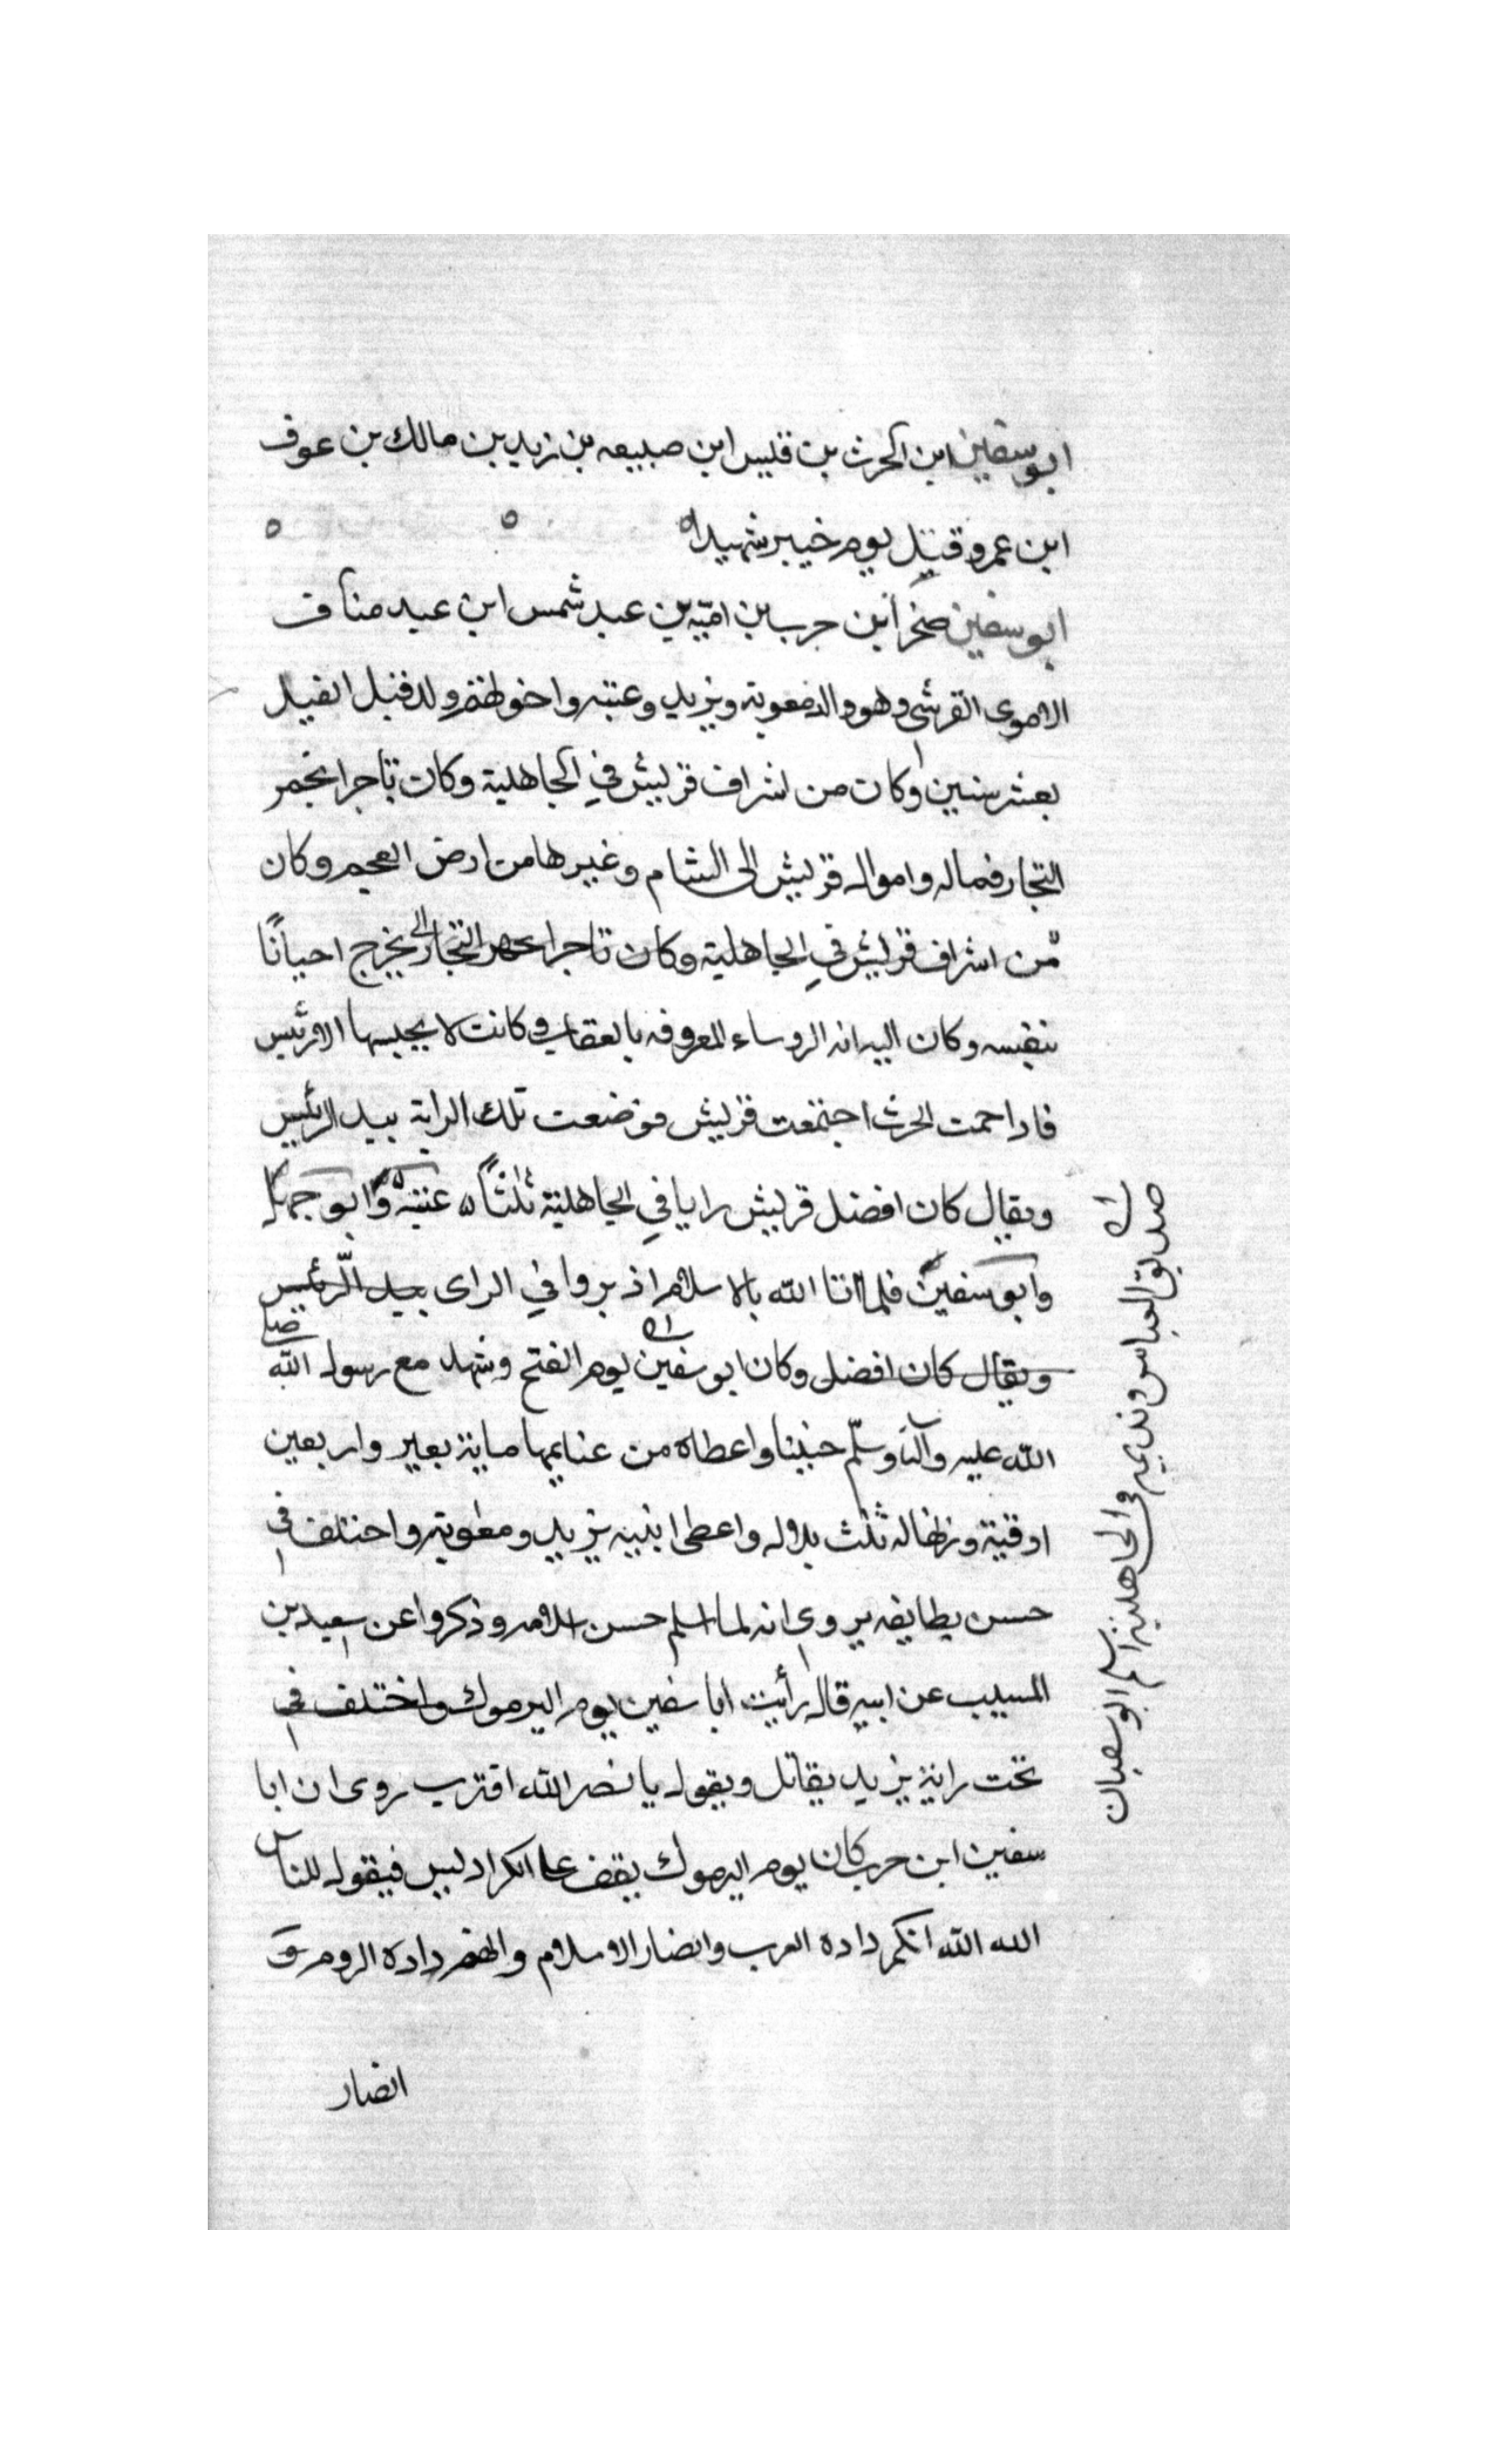 ابو سفين ابن الحرث بن قيس ابن صبيعه بن زيد بن مالك بن عوف
ابن عمرو قتيل يوم خيبر شهيدا
ابو سفين صخر ابن حرب بن امية بن عبد شمس ابن عبد مناف
الاموى القرشى وهو والد معوية ويزيد وعتبه واخوطهم ولد قبل الفيل
بعشر سنين وكان من اشراف قريش في الجاهلية وكان تاجرا يجهر
التجار فماله واموال قريش الى الشام وغيرها من ارض العجم وكان
من اشراف قريش في الجاهلية وكان تاجرا التجار الى يخرج احيانًا
بنفسه وكان اليه رايه الروساء المعروفه بالعقاب وكانت لا يحبسها الا رئيس
فاذا حمت الحرب اجتمعت قريش فوضعت تلك الراية بيد الرئيس
ويقال كان افضل قريش رايا في الجاهلية ثلثًا عتبة وابو جهل
وابو سفين فلما اتا الله بالاسلام اذبروا في الراى بيد الرئيس
ويقال كان افضل وكان ابو سفين يوم الفتح وشهد مع رسول الله صلى
الله عليه وآله وسلّم حنينا واعطاه من غنايمها ماية بعير واربعين
اوقية وزنها له بلال واعطى ابنيه يزيد ومعوية واختلف في
حسن يطايفه يروى انه لما اسلم حسن اسلامه وذكروا عن سعيد بن
المسيب عن ابيه قال رأيت ابا سفين يوم اليرموك واختلف في
تحت راية يزيد يقاتل ويقول يا نصر الله اقترب روى ان ابا
سفين ابن حرب كان يوم اليرموك يقف على الكراديس فيقول للناس
الله الله انكم دادة العرب وانصار الاسلام وانهم دادة الروم و
انصار
صديق العباس ونديمه فى الجاهلية اسلم ابو سفيان